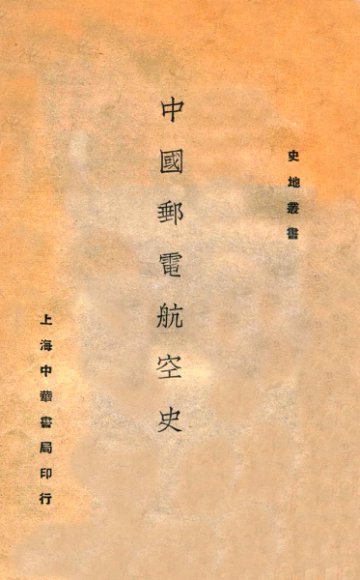 史地叢書
中國郵電航空史
上海中華書局印行